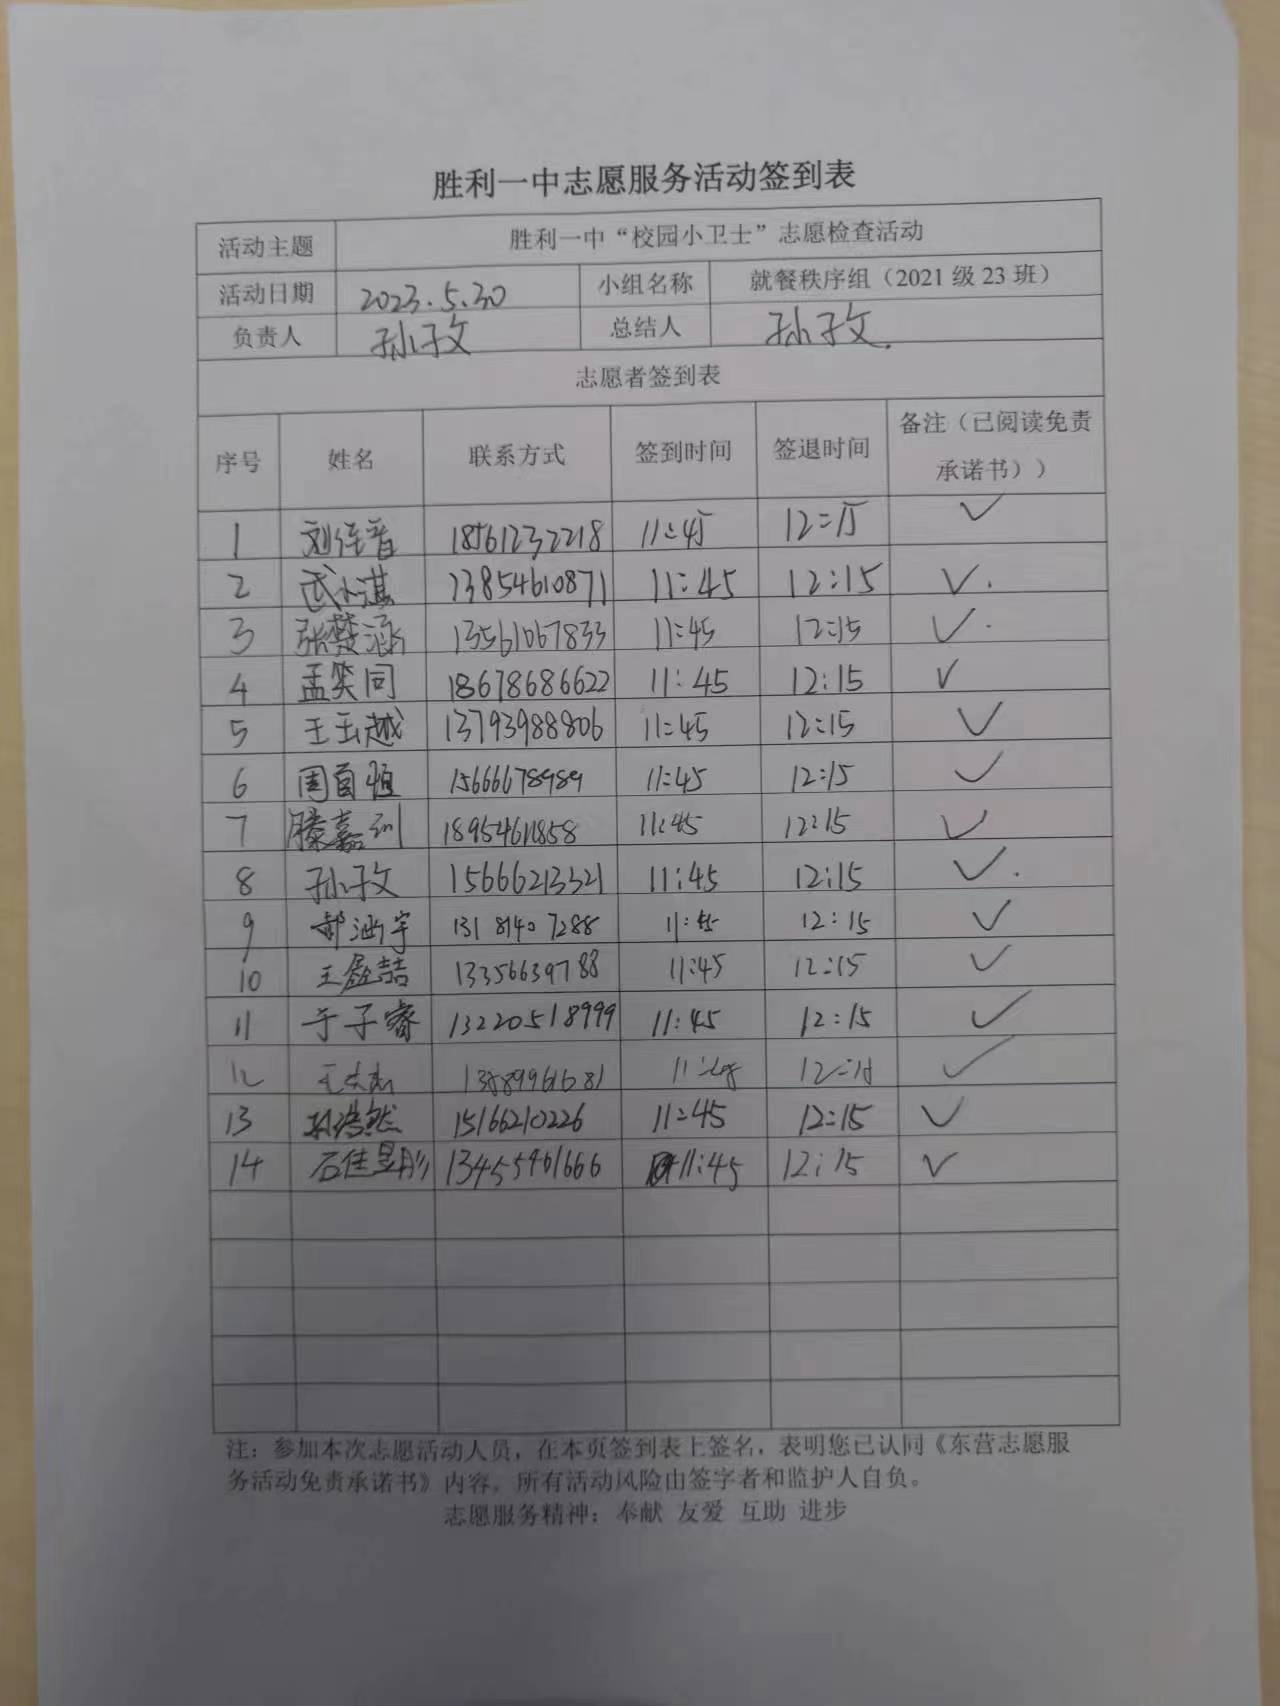 胜利一中志愿服务活动签到表
活动主题 胜利一中“校园小卫士”志愿检查活动
活动日期 2023.5.30 小组名称 就餐秩序组（2021级23班）
负责人 孙孜 总结人 孙孜
志愿者签到表
序号 姓名 联系方式 签到时间 签退时间 备注（已阅读免责承诺书））
1 18561232218 11:45 12:15 ✓
2 13854610871 11:45 12:15 ✓
3 张楚涵 13561067833 11:45 12:15 ✓
4 孟笑同 18678686622 11:45 12:15 ✓
5 王玉越 13793988806 11:45 12:15 ✓
6 15666678989 11:45 12:15 ✓
7 11:45 12:15 ✓
8 孙孜 15666213321 11:45 12:15 ✓
9 郝涵宇 13181407288 11:45 12:15 ✓
10 王鑫喆 13356639788 11:45 12:15 ✓
11 于子睿 13220518999 11:45 12:15 ✓
12 11:45 ✓
13 孙浩然 15166210226 11:45 12:15 ✓
14 石佳昱彤 13455961666 11:45 12:15 ✓
注：参加本次志愿活动人员，在本页签到表上签名，表明您已认同《东营志愿服
务活动免责承诺书》内容，所有活动风险由签字者和监护人自负。
志愿服务精神：奉献 友爱 互助 进步